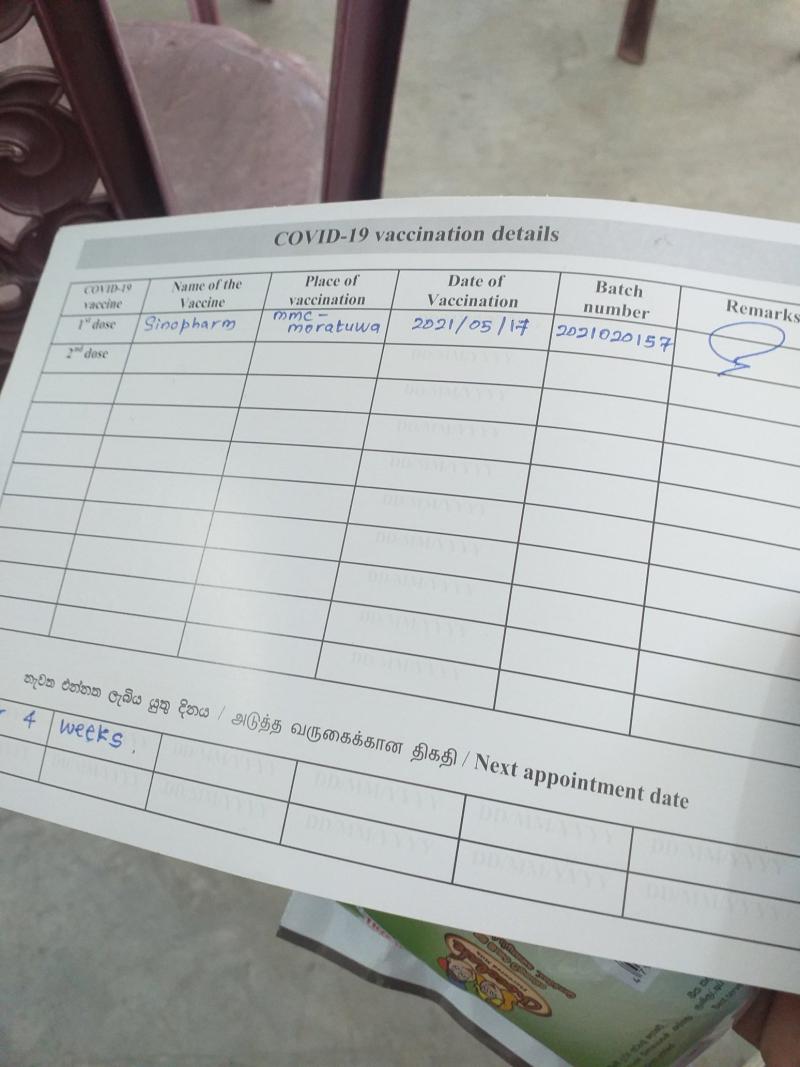 COVID-19 vaccination details
COVID-19 vaccine Name of the Vaccine Place of vaccination Date of Vaccination Batch number Remarks
1st dose Sinopharm mmc - moratuwa 2021/05/17 2021020157
2nd dose DD/MM/YYYY
DD/MM/YYYY
DD/MM/YYYY
DD/MM/YYYY
DD/MM/YYYY
DD/MM/YYYY
DD/MM/YYYY
DD/MM/YYYY
DD/MM/YYYY
නැවත එන්නත ලැබිය යුතු දිනය / அடுத்த வருகைக்கான திகதி / Next appointment date
4 weeks. DD/MM/YYYY DD/MM/YYYY DD/MM/YYYY DD/MM/YYYY
DD/MM/YYYY DD/MM/YYYY DD/MM/YYYY DD/MM/YYYY DD/MM/YYYY